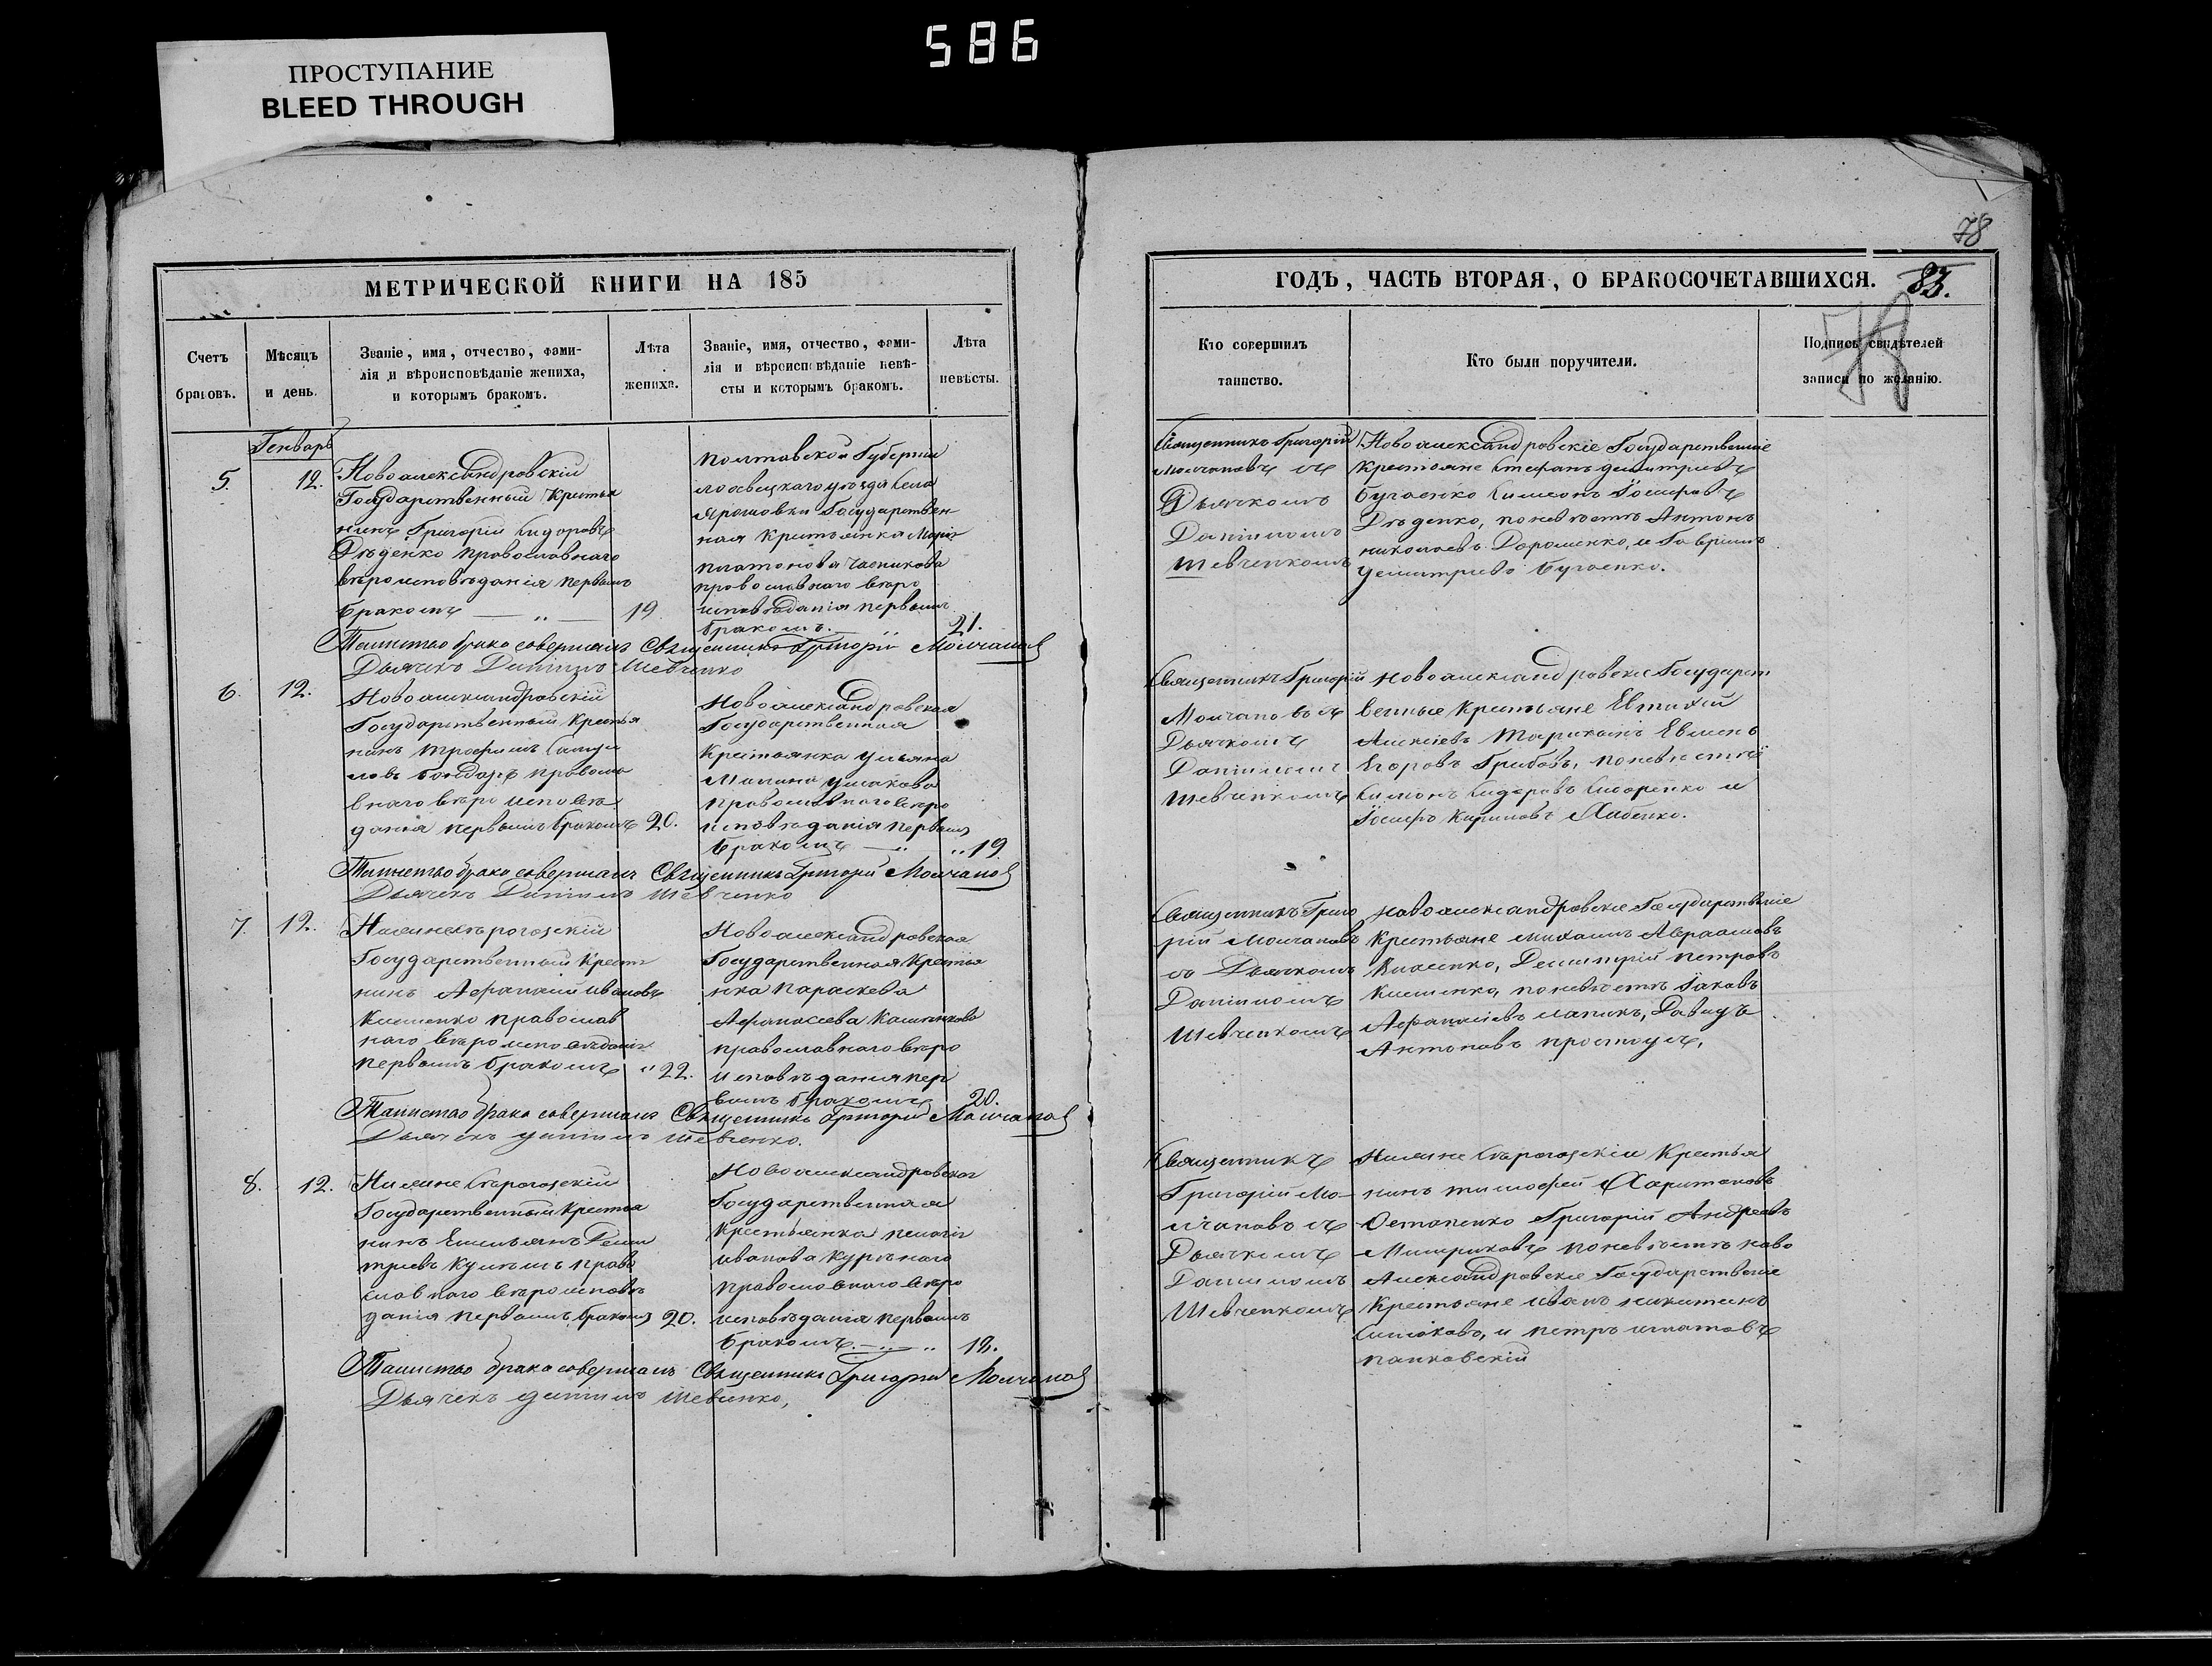 586
ПРОСТУПАНИЕ
BLEED THROUGH
78
МЕТРИЧЕСКОЙ КНИГИ НА 185
Счетъ браковъ.
Мѣсяцъ и день.
Званіе, имя, отчество, фами-
лія и вѣроисповѣданіе жениха,
и которымъ бракомъ.
Лѣта жениха.
Званіе, имя, отчество, фами-
лія и вѣроисповѣданіе невѣ-
сты и которымъ бракомъ.
Лѣта невѣсты.
Генварь
5.
12.
Новоалександровскій
Государственный Крестья
нинъ Григорій Сидоровъ
Дѣденко православнаго
вѣроисповѣданія первымъ
бракомъ
19
Полтавской Губерніи
уѣзда села
Государствен
ная
Платонова
православнаго вѣро
исповѣданія первымъ
бракомъ.
21.
Таинство брака совершалъ Священникъ Григорій Молчановъ
Дьячекъ Даніилъ Шевченко
6.
12.
Новоалександровскій
Государственный Крестья
нинъ Трофимъ
Бондарь правосла
внаго вѣроисповѣ
данія первымъ бракомъ
20.
Новоалександровская
Государственная
Крестьянка Ульяна
православнаго вѣро
исповѣданія первымъ
бракомъ
19
Таинство брака совершалъ Священникъ Григорій Молчановъ
Дьячекъ Даніилъ Шевченко
7.
12.
Государственный Крестья
нинъ Афанасій Ивановъ
православ
наго вѣроисповѣданія
первымъ бракомъ
22.
Новоалександровская
Государственная Крестья
нка Параскева
Афанасіева
православнаго вѣро
исповѣданія пер
вымъ бракомъ
20.
Таинство брака совершалъ Священникъ Григорій Молчановъ
Дьячекъ Даніилъ Шевченко.
8.
12.
Государственный Крестья
нинъ Емельянъ Деми
тріевъ право
славнаго вѣроисповѣ
данія первымъ бракомъ
20.
Новоалександровская
Государственная
Крестьянка Пелагія
Иванова
православнаго вѣро
исповѣданія первымъ
бракомъ.
18.
Таинство брака совершалъ Священникъ Григорій Молчановъ
Дьячекъ Даніилъ Шевченко,
ГОДЪ, ЧАСТЬ ВТОРАЯ, О БРАКОСОЧЕТАВШИХСЯ.
83.
78
Кто совершилъ таинство.
Кто были поручители.
Подпись свидѣтелей
записи по желанію.
Священникъ Григорій
Молчановъ съ
Дьячкомъ
Даніиломъ
Шевченкомъ
Новоалександровскіе Государственные
крестьяне Стефанъ Демитріевъ
Бугаенко Симеонъ Іосифовъ
Дѣденко, по невѣстѣ Антонъ
Николаевъ Дорошенко, и Гавріилъ
Демитріевъ Бугаенко.
Священникъ Григорій
Молчановъ съ
Дьячкомъ
Даніиломъ
Шевченкомъ
Новоалександровскіе Государст
венные Крестьяне Евтихій
Алексіевъ
Егоровъ Грибовъ, по невѣстѣ
Симонъ Сидоровъ и
Іосифъ Кириловъ
Священникъ Григо
рій Молчановъ
съ Дьячкомъ
Даніиломъ
Шевченкомъ
Новоалександровскіе Государственные
Крестьяне Михаилъ Авраамовъ
Демитрій Петровъ
по невѣстѣ Іаковъ
Афанасіевъ Давидъ
Антоновъ
Священникъ
Григорій Мо-
лчановъ съ
Дьячкомъ
Даніиломъ
Шевченкомъ
Крестья
нинъ Тимофей Харитоновъ
Остапенко Григорій Андреевъ
по невѣстѣ Ново
Александровскіе Государственные
Крестьяне Иванъ Никитинъ
и Петръ Игнатовъ